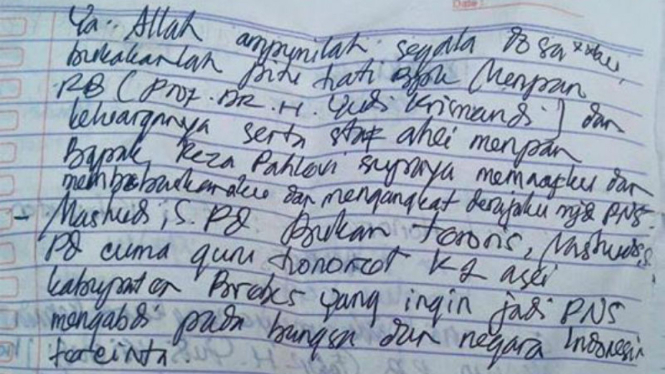 Date:
Ya.. Allah ampunilah segala dosa²ku,
bukakanlah pintu hati Bpk (Menpan
RB (Prof. DR. H. Yudi Krisnandi) dan
keluargnnya serta staf ahli menpan
Bapak Reza Pahlevi supaya memaafku dan
membebaskanaku dan mengangkat derajatku mjd PNS.
- Mashudi, S. Pd Bukan teroris, Mashudi, S.
Pd cuma guru honorer K2 asli
kabupaten Brebes yang ingin jadi PNS
mengabdi pada bangsa dan negara Indonesia
tercinta.